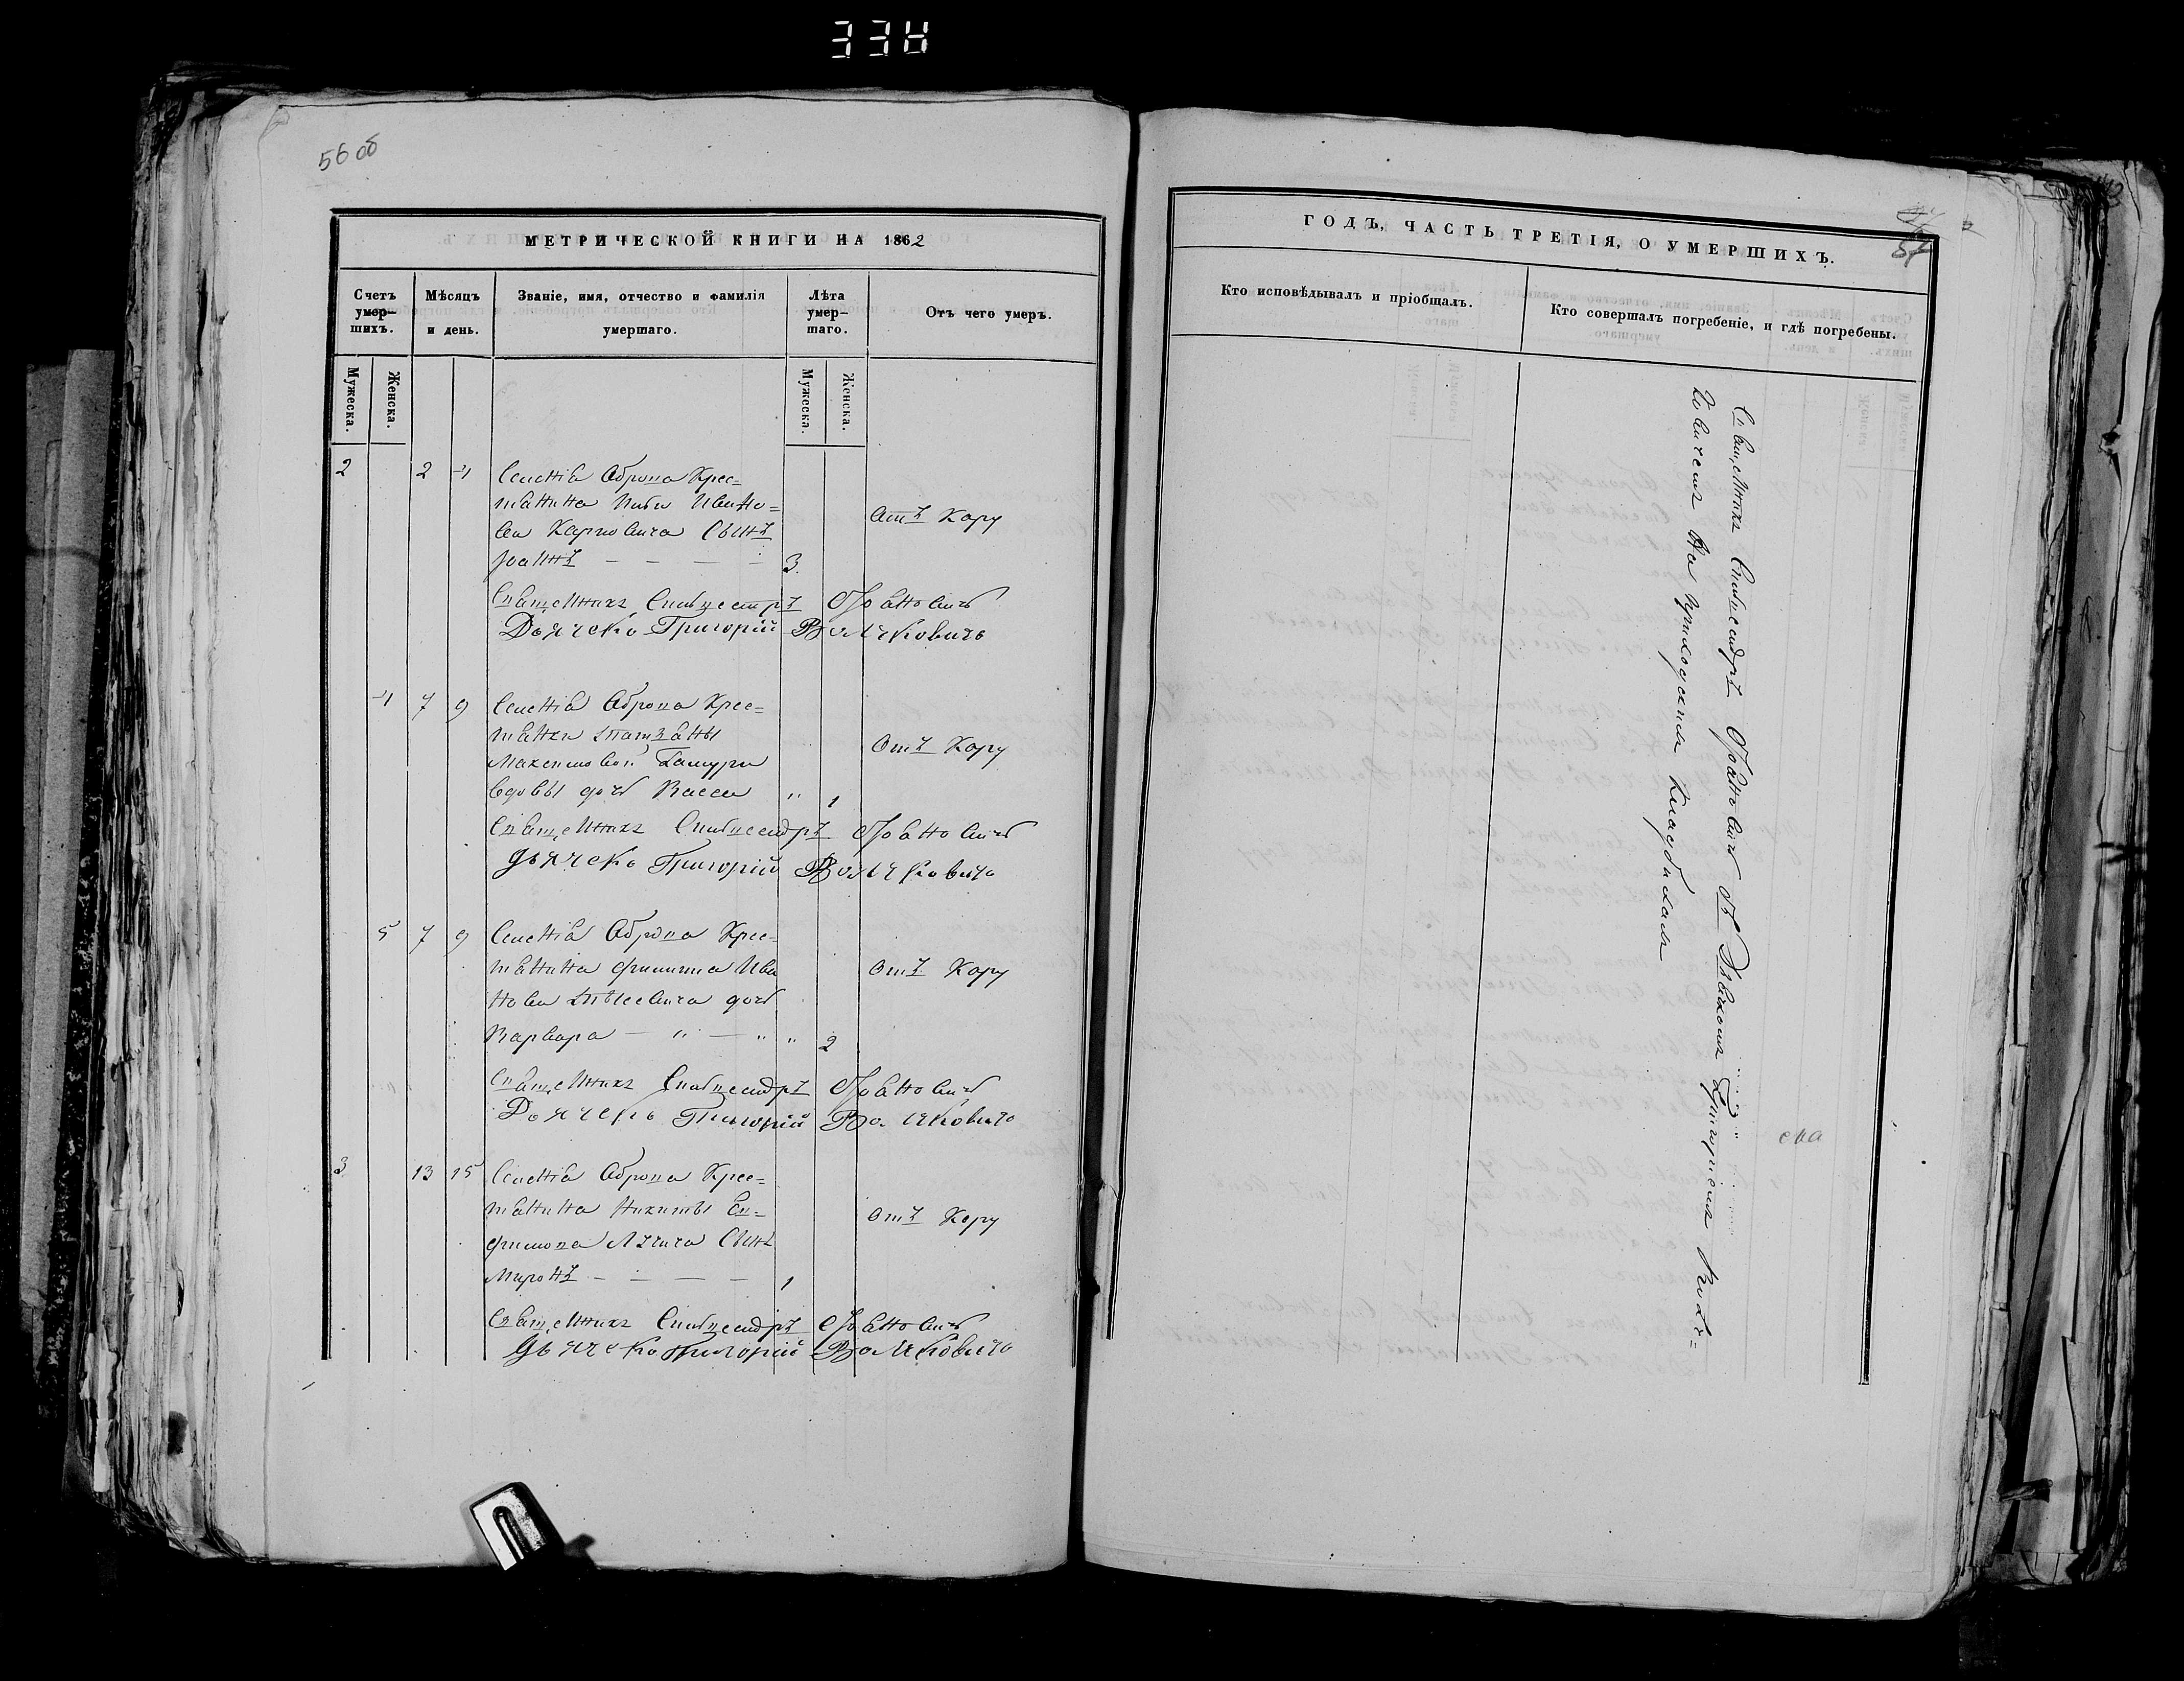 338
56 об
МЕТРИЧЕСКОЙ КНИГИ НА 1862
Счетъ умер-шихъ.
Мѣсяцъ и день.
Званіе, имя, отчество и фамилія умершаго.
Лѣта умер-шаго.
Отъ чего умеръ.
Мужеска.
Женска.
Мужеска.
Женска.
2 2 4 Селенія Обропа Крес=
тянина
Карповича Сынъ
Іоаннъ — — — — 3.
Отъ Кору
Священникъ Сильвестръ
Дьячекъ Григорій Волчковичъ
4 7 9 Селенія Обропа Крес=
тянки Татіаны
Максимовой
вдовы дочь Васса „ 1
Отъ Кору
Священникъ Сильвестръ
Дьячекъ Григорій Волчковичъ
5 7 9 Селенія Обропа Крес=
тянина Филиппа Ива
нова дочь
Варвара — „ — „ „ 2
Отъ Кору
Священникъ Сильвестръ
Дьячекъ Григорій Волчковичъ
3 13 15 Селенія Обропа Крес=
тянина Никиты Ев=
фимова Сынъ
Миронъ — — — — 1
Отъ Кору
Священникъ Сильвестръ
Дьячекъ Григорій Волчковичъ
ГОДЪ, ЧАСТЬ ТРЕТІЯ, О УМЕРШИХЪ.
57
Кто исповѣдывалъ и пріобщалъ.
Кто совершалъ погребеніе, и гдѣ погребены.
Священникъ Сильвестръ съ Дьячкомъ Григоріемъ Волч=
ковичемъ на приходскихъ кладбищахъ